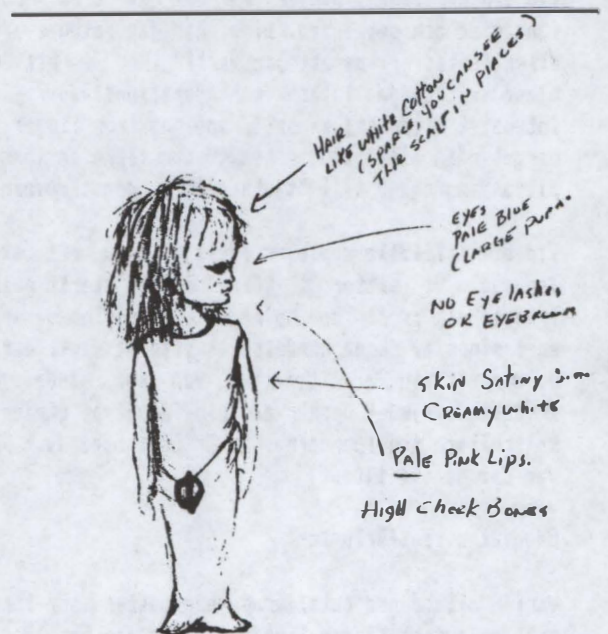 HAIR
LIKE WHITE COTTON
(SPARCE, YOU CAN SEE
THE SCALP IN PLACES)
EYES
PALE BLUE
(LARGE
NO EYE lAShES
OR
SKIN SATINY
CREAMY WHITE
PALE PINK LIPS.
HIgH CheeK BONES